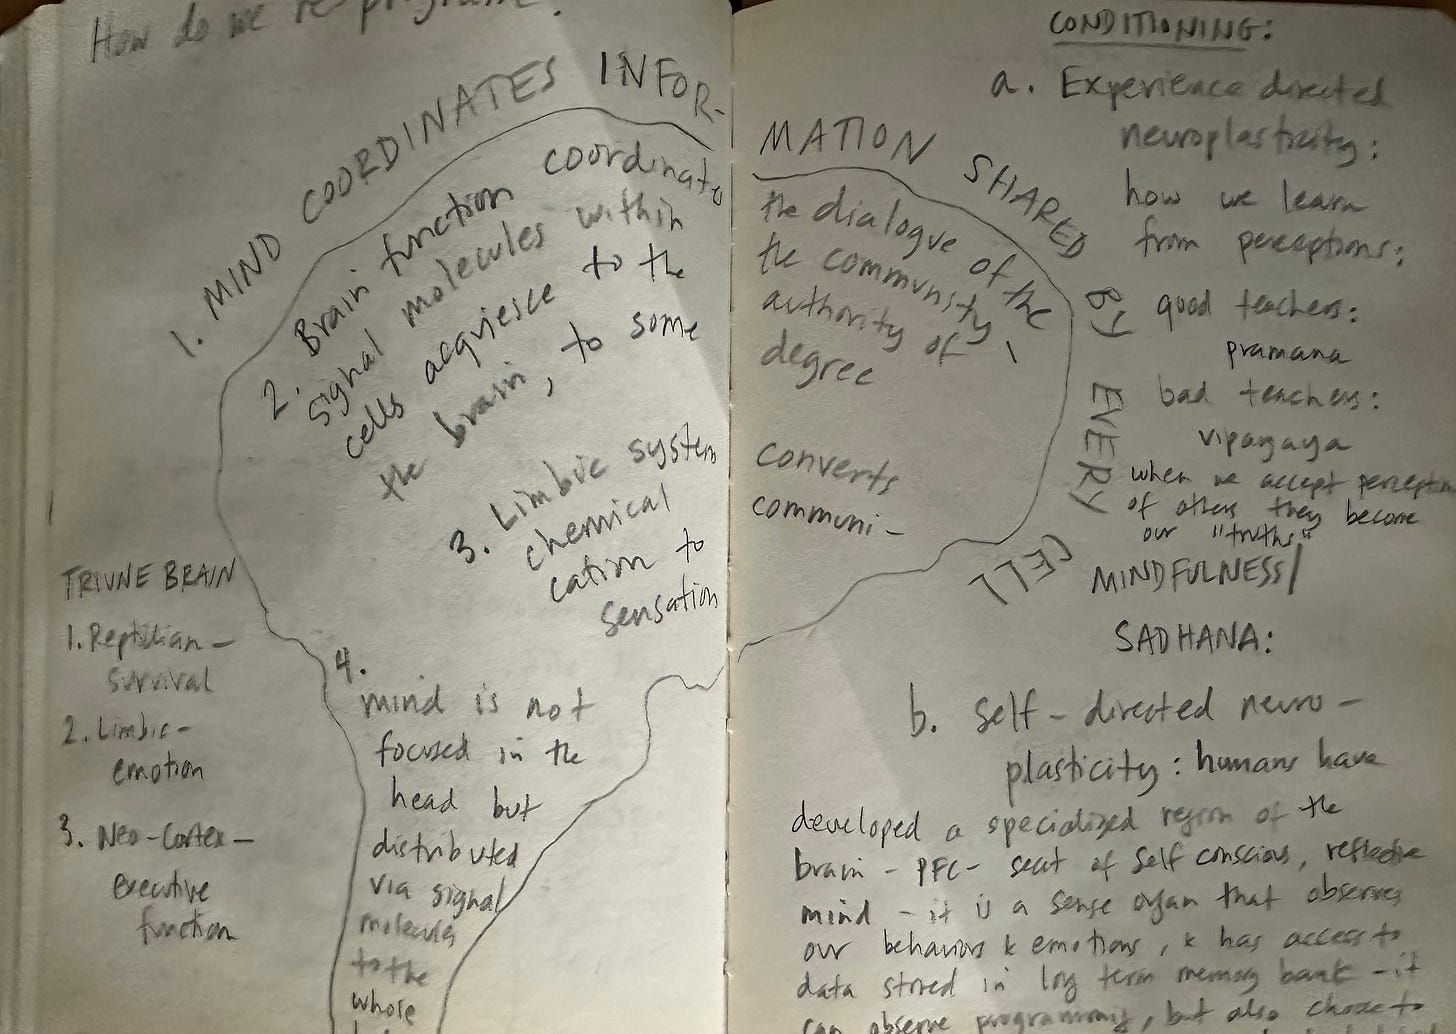 How do we re program?
1. MIND COORDINATES INFOR-
MATION SHARED BY EVERY CELL
2. Brain function coordinates
the dialogue of the
signal molecules within
the community -
cells acquiesce to the
authority of
the brain, to some
degree
3. Limbic system
converts
chemical
communi-
cation to
sensation
4.
mind is not
focused in the
head but
distributed
via signal
molecules
to the
whole
TRIUNE BRAIN
1. Reptilian -
survival
2. Limbic -
emotion
3. Neo-Cortex -
executive
function
CONDITIONING:
a. Experience directed
neuroplasticity:
how we learn
from perceptions:
good teachers:
pramana
bad teachers:
vipayaya
when we accept perceptions
of others they become
our "truths"
MINDFULNESS/
SADHANA:
b. Self-directed neuro-
plasticity: humans have
developed a specialized region of the
brain - PFC - seat of self conscious, reflective
mind - it is a sense organ that observes
our behaviors & emotions, & has access to
data stored in long term memory bank - it
can observe programming, but also choose to